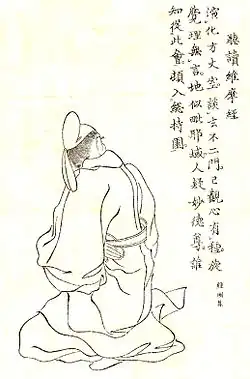 聽讀維摩經
演化方丈室談玄不二門已觀心有種旋
覺理無言地似毗耶城人疑妙德尊誰
知從此會頓入緫持園